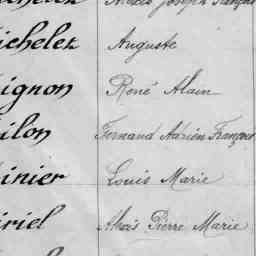 Alexis Joseph François
ichelez Auguste
ignon René Alain
ilon Fernand Adrien François
inier Louis Marie
iriel Alexis Pierre Marie